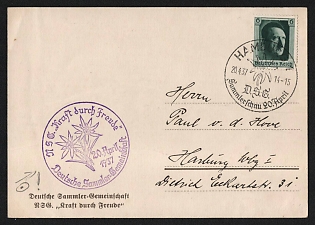 Deutsches Reich
HAMBURG
20.4.37
14-15
D.S.G.
Sammlerschau 20. April
NSG. Kraft durch Freude
20. April
1937
Deutsche Sammler-Gemeinschaft
Herrn
Paul v. d. Hove
Harburg
Dietrich Eckartstr. 31
Deutsche Sammler-Gemeinschaft
NSG. „Kraft durch Freude"